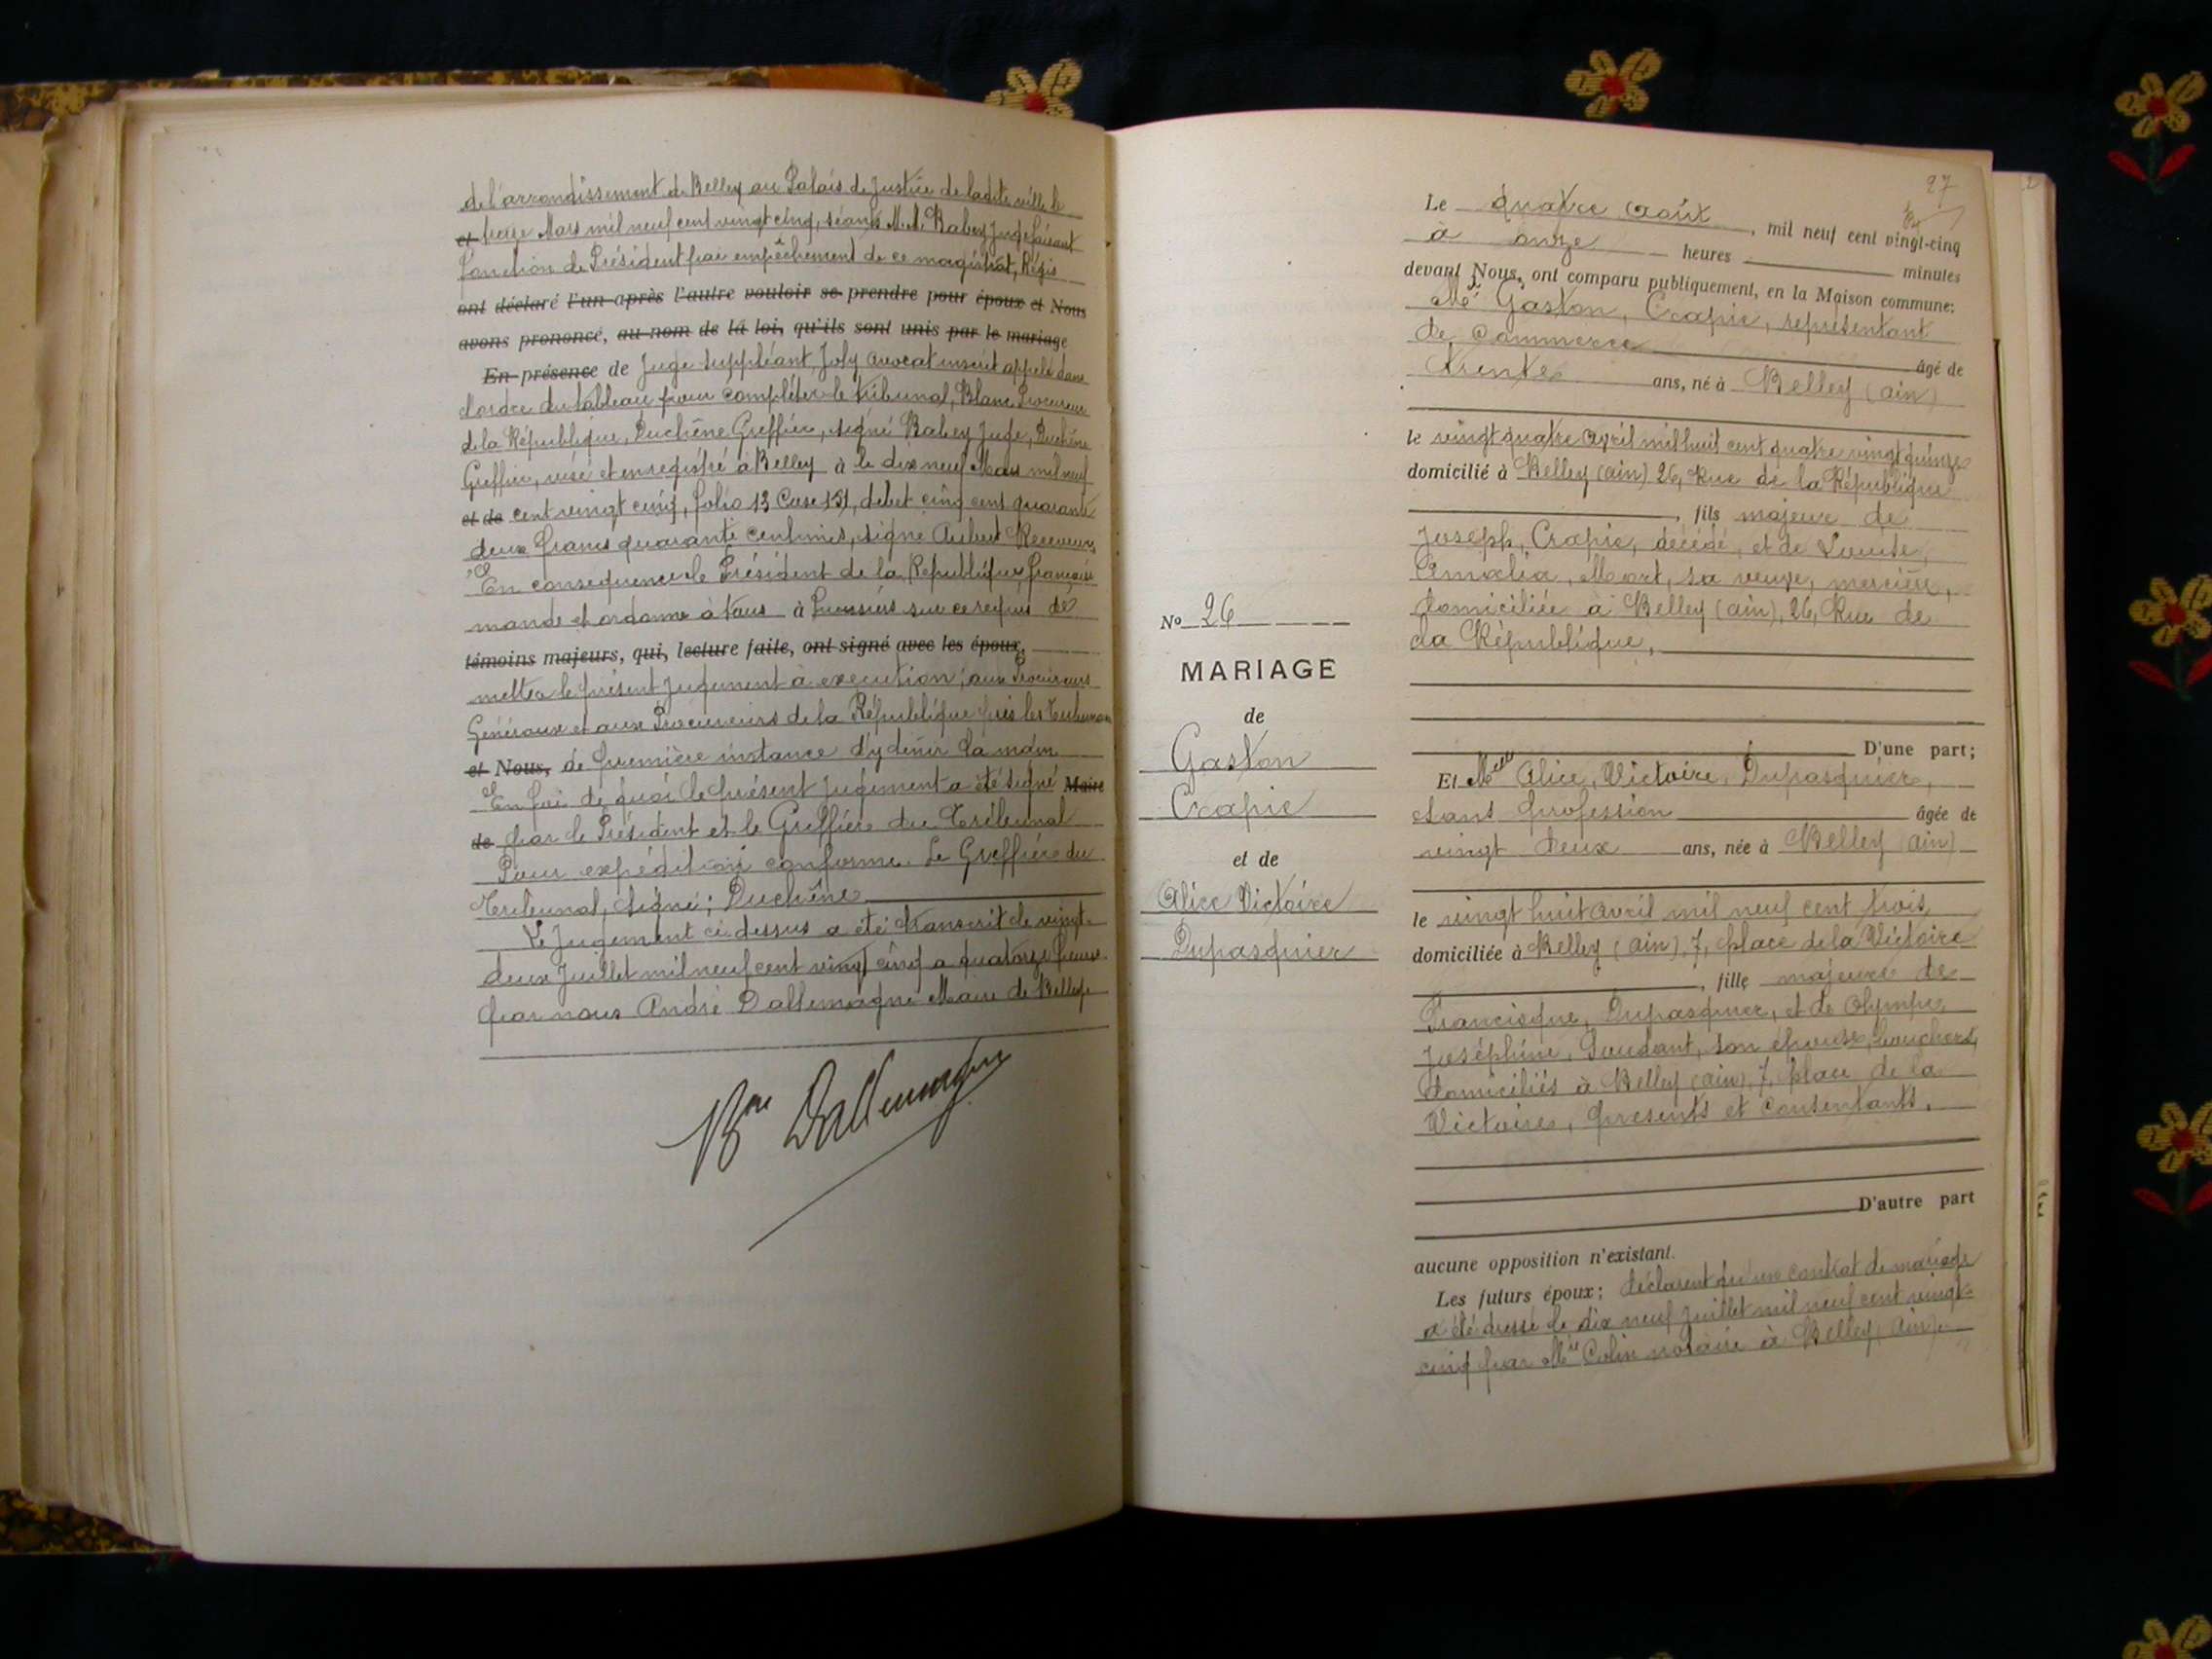 de l'arrondissement de Belley au Palais de Justice de ladite ville le
et treize Mars mil neuf cent vingt cinq, séants M.M. Rabey Juge faisant
fonction de Président par empêchement de ce magistrat, Régis
ont déclaré l'un après l'autre vouloir se prendre pour époux et Nous
avons prononcé, au nom de la loi, qu'ils sont unis par le mariage
En présence de Juge suppléant, Joly avocat inscrit appelé dans
l'ordre du tableau pour compléter le tribunal, Blanc Procureur
de la République, Duchêne Greffier, signé Rabey Juge, Duchêne
Greffier, visé et enregistré à Belley à le dix neuf Mars mil neuf
et de cent vingt cinq, folio 13 Case 131, debet cinq cent quarante
deux francs quarante centimes, signé Aubert Receveur,
En consequence le Président de la République française
mande et ordonne à tous à huissiers sur ce requis de
témoins majeurs, qui, lecture faite, ont signé avec les époux,
mettre le présent Jugement à execution; aux Procureurs
Généraux et aux Procureurs de la République près les Tribunaux
et Nous, de première instance d'y tenir la main
En foi de quoi le présent Jugement a été signé Maire
de par le Président et le Greffier du Tribunal
Pour expédition conforme. Le Greffier du
Tribunal, signé; Duchêne
Le Jugement ci dessus a été transcrit le vingt
deux Juillet mil neuf cent vingt cinq a quatorze heures
par nous André Dallemagne Maire de Belley
Bon Dallemagne
27
Le quatre août, mil neuf cent vingt-cinq
à onze heures minutes
devant Nous, ont comparu publiquement, en la Maison commune:
Mr Gaston, Crapie, représentant
de commerce âgé de
trente ans, né à Belley (ain)
le vingt quatre avril mil huit cent quatre vingt quinze
domicilié à Belley (ain) 26, Rue de la République
, fils majeur de
Joseph, Crapie, décédé, et de Louise,
Amélia, Mort, sa veuve, mercière,
domiciliée à Belley (ain), 26, Rue de
la République,
D'une part;
Et Melle Alice, Victoire, Dupasquier,
sans profession âgée de
vingt deux ans, née à Belley (ain)
le vingt huit avril mil neuf cent trois
domiciliée à Belley (ain), 7, place de la Victoire
, fille majeure de
Francisque, Dupasquier, et de Olympe
Joséphine, Goudant, son épouse, bouchers,
domiciliés à Belley (ain), 7, place de la
Victoire, présents et consentants.
D'autre part
aucune opposition n'existant.
Les futurs époux; déclarent qu'un contrat de mariage
a été dressé le dix neuf Juillet mil neuf cent vingt-
cinq par Me Colin notaire à Belley (ain).
No 26
MARIAGE
de
Gaston
Crapie
et de
Alice Victoire
Dupasquier